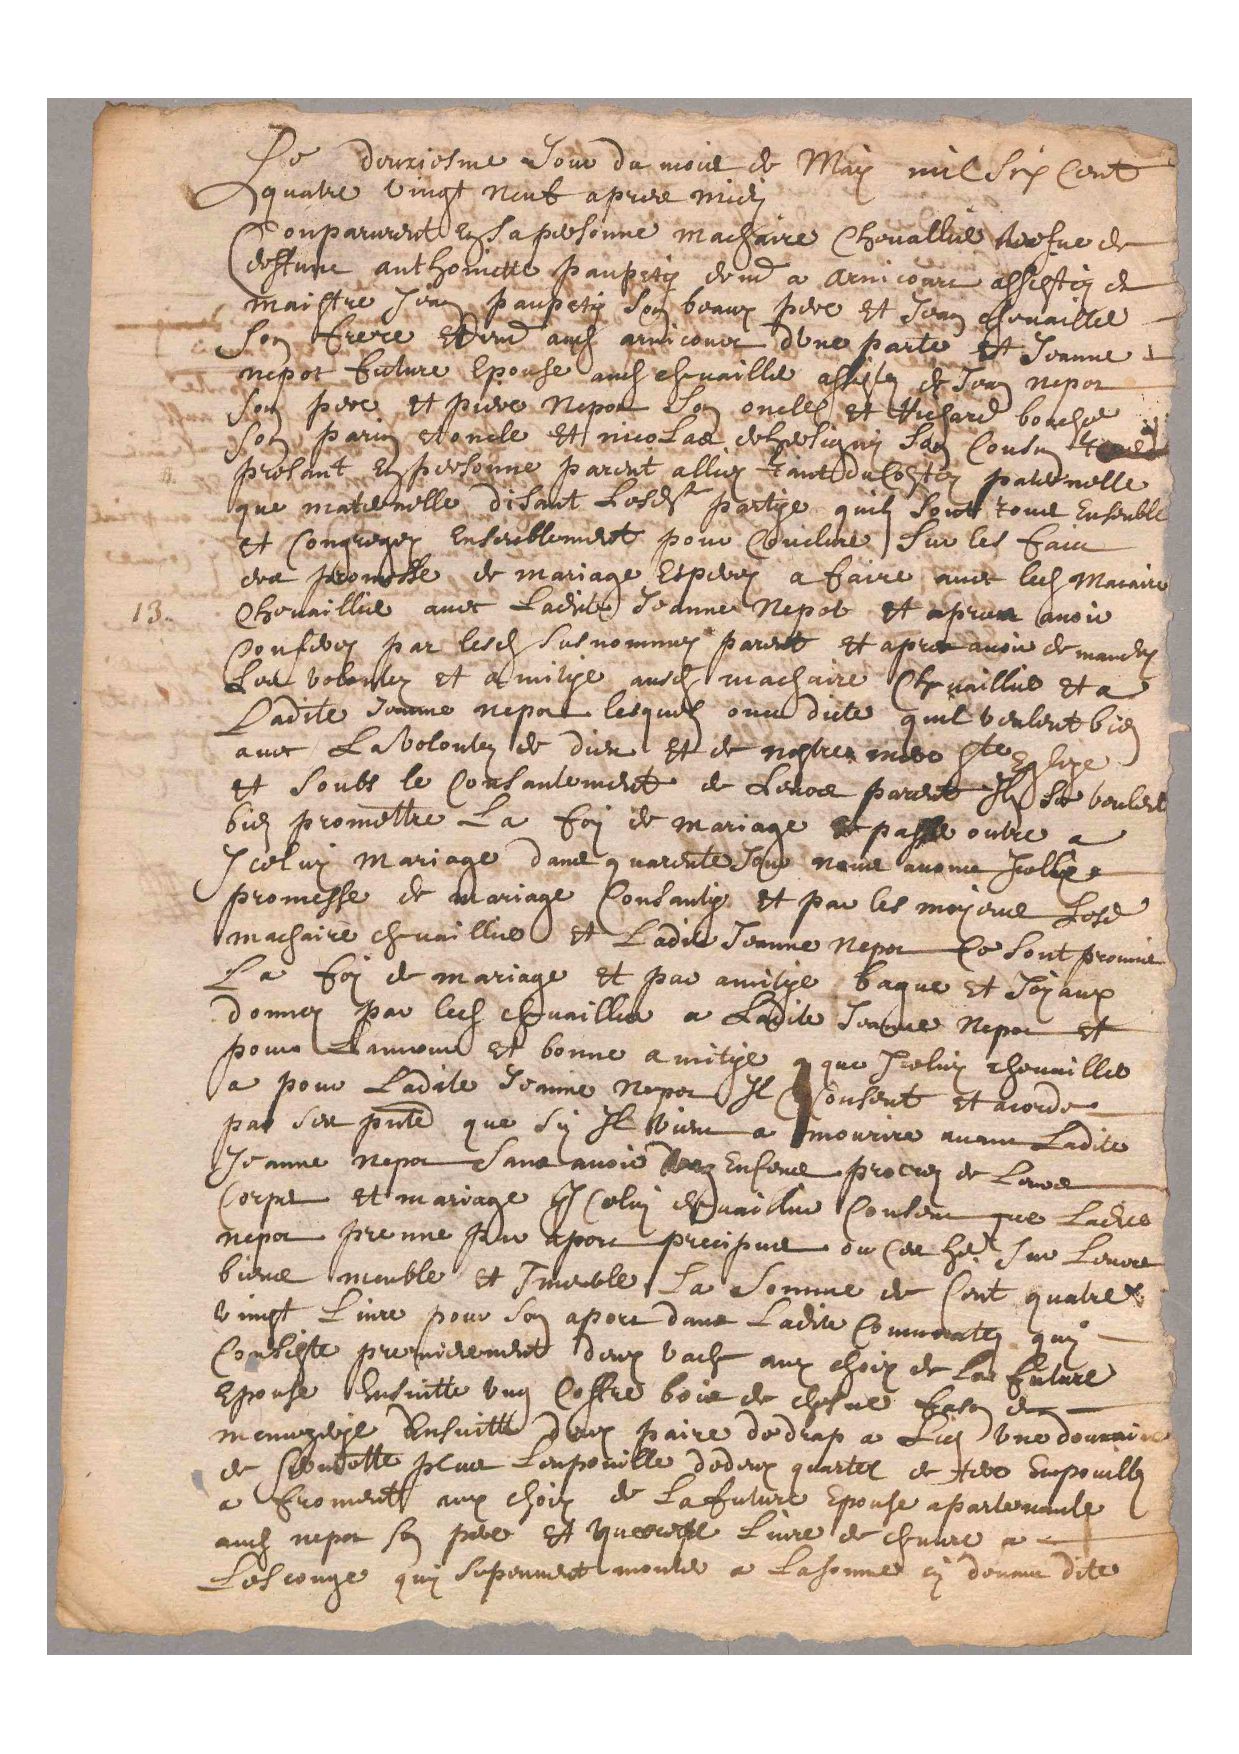 Le deuxiesme Jour du mois de May mil Six Cent
quatre vingt neuf apres midy
Comparurent En Sa personne machaire Chevallier vefue de
deffunte anthoinette paupety demt a arnicourt assistez de
maistre Jean paupety Son beaux pere et Jean chevaillie
Son frere et demt audt arnicourt d'une parte Et Jeanne
nepot future Epouse audt chevaillie assistez de Jean nepot
Son pere et piere Nepot Son oncle et Richard bouche
Son parin et oncle Et nicolas de Son Cousin
presant En personne parent alliez tant du Costez paternelle
que maternelle disant Lesdt partye quil Sont tous Ensemble
et Congregez Ensemblement pour Conclure Sur les faict
des promesse de mariage Esperez a faire avec ledt Macaire
13. Chevaillier avec Ladite Jeanne Nepot et apres avoir
Conferez par lesdt Susnommez parent et apres avoir demandez
Les volontez et amitye audt machaire Chevaillier et a
Ladite Jeanne nepot lesquels ont dicte quil veulent bien
avec La volontez de dieu et de nostre mere Ste Eglize
et Soubs le Consantement de Leurs parent Ils Se veulent
bien promettre La foy de mariage Et passe outre a
Iceluy mariage dans quarente Jour nous avons Icelle
promesse de mariage Consanty et par les moyens Lesdt
machaire chevaillier et Ladite Jeanne Nepot Ce Sont promis
La foy de mariage et par amitye bague et Joyaux
donnez par ledt chevaillie a Ladite Jeanne Nepot et
pour Lamour et bonne amitye que Iceluy chevaillie
a pour Ladite Jeanne Nepot Il Consent et acorde
par ses pnte que Sy Il vient a mourire avant Ladite
Jeanne nepot Sans avoir Enfens procrez de Leurs
Corps et mariage Iceluy chevaillier Consent que Ladite
nepot prenne par aport precipus ou Ces her Sur Leurs
biens meuble et Imeuble La Somme de Cent quatre
vingt Livre pour Son aport dans Ladite Comunautez quy
Consiste premierement deux vache aux choix de La future
Epouse Ensuitte vng Coffre bois de chesne fason de
menuzerye Ensuitte deux paire de drap a Lict Une douzaine
de Serviette plus Lenpouille de deux quartel de tere Enpouillez
a froment aux choix de La future Epouse apartenante
audt nepot Son pere et Livre de chenvre a
quy Sepeuvent monter a La Somme cy devant dite